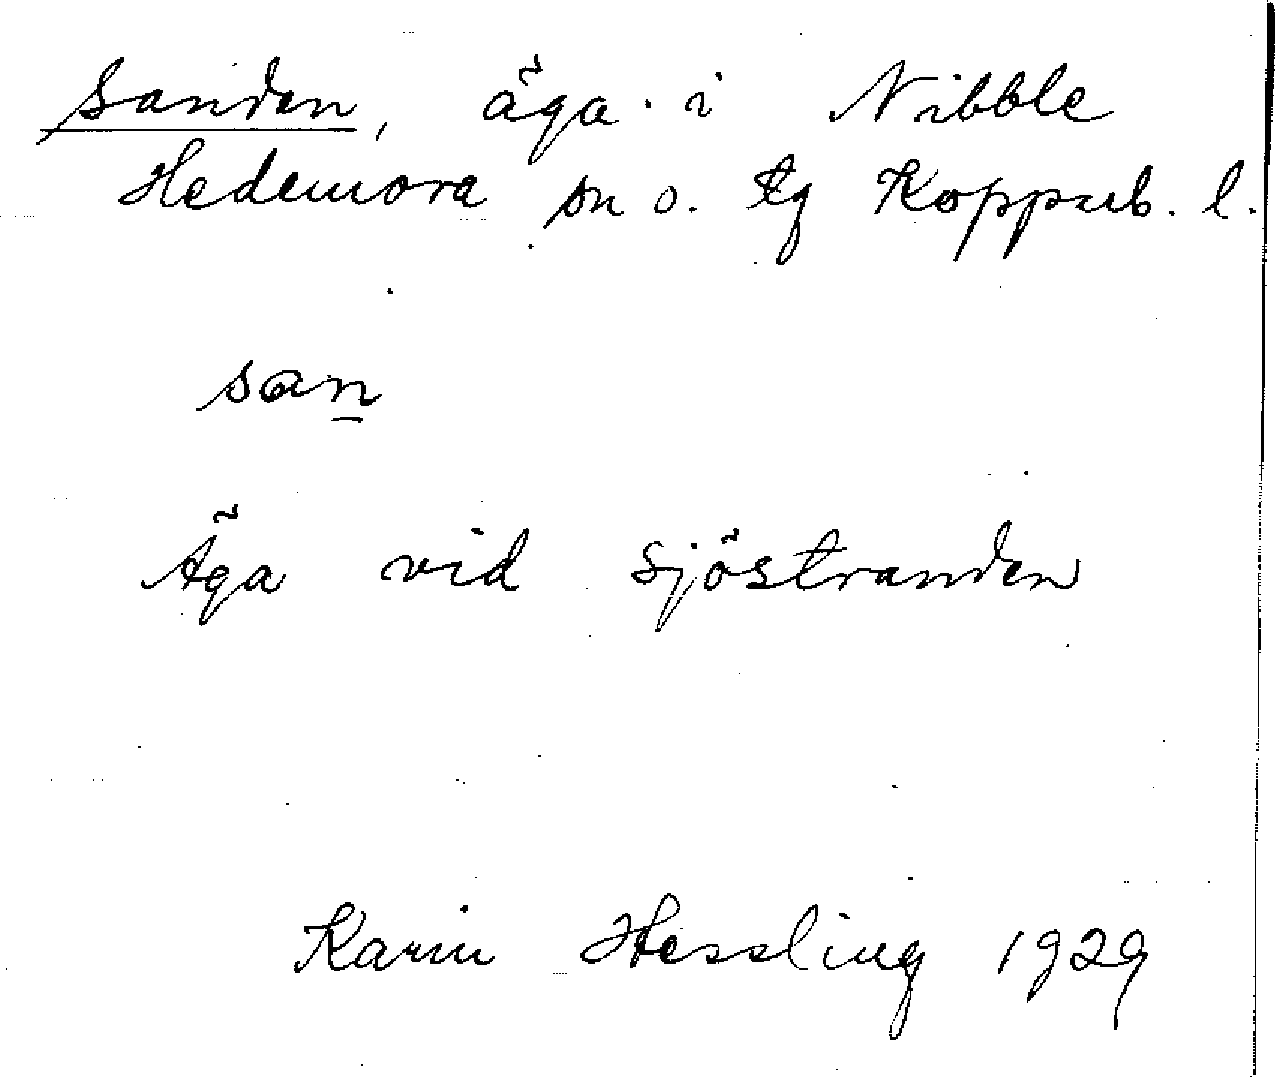 Sanden, äga i Nibble
Hedemora sn o. tg Kopparb. l.
san
Äga vid sjöstranden
Karin Hessling 1929